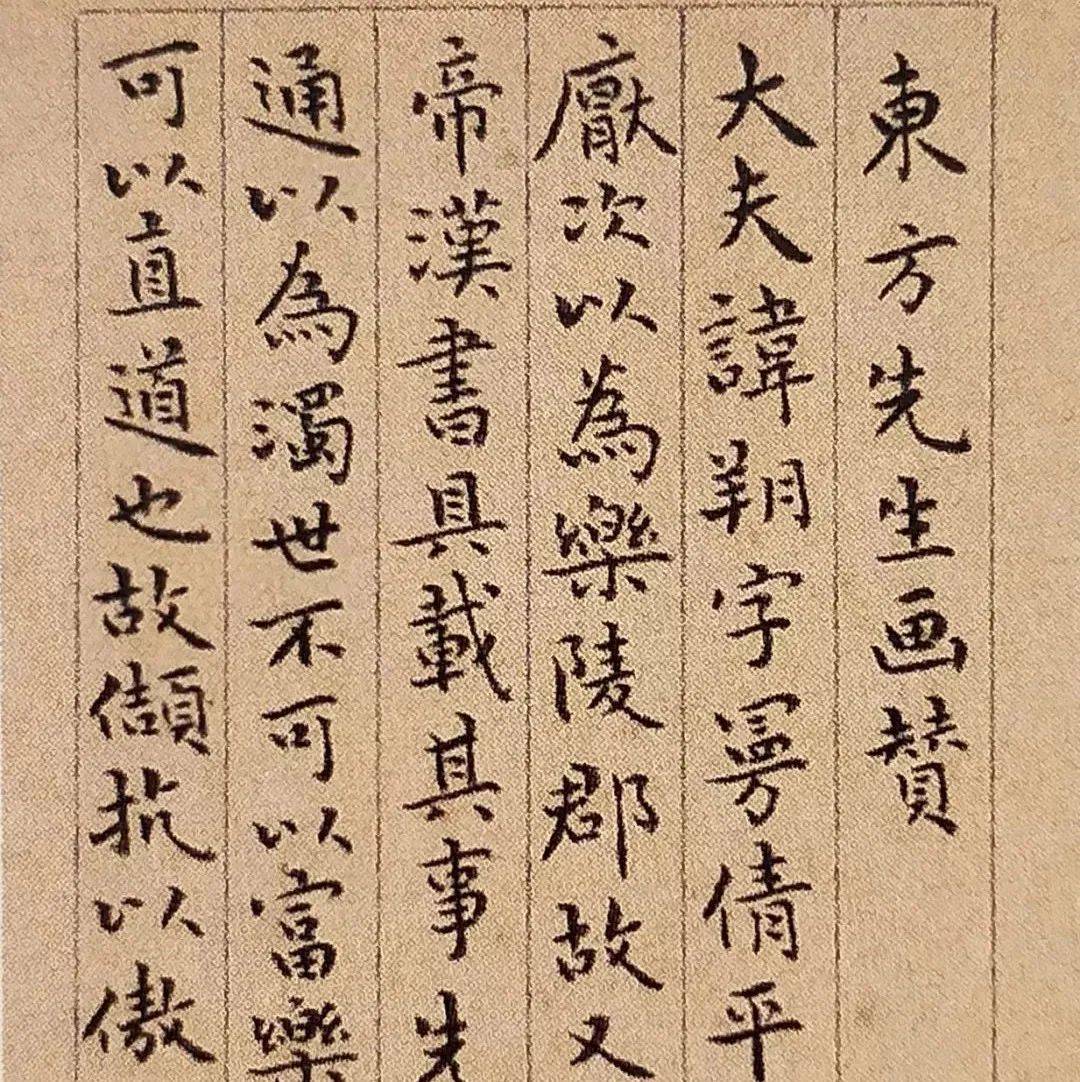 東方先生画賛
大夫諱朔字曼倩平
厭次以為樂陵郡故又
帝漢書具載其事先
通以為濁世不可以富樂
可以直道也故頡抗以傲